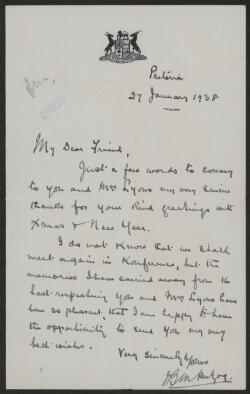 Pretoria
27 January 1938.
My Dear Friend,
Just a few words to convey
to you and Mrs Lyons my very sincere
thanks for your kind greetings with
Xmas & New Year.
I do not know that we shall
meet again in Konferences, but the
memories I have carried away from the
last respecting you and Mrs Lyons have
been so pleasant, that I am happy to have
the opportunity to send you my very
best wishes.
Very Sincerely Yours
JBM Hertzog